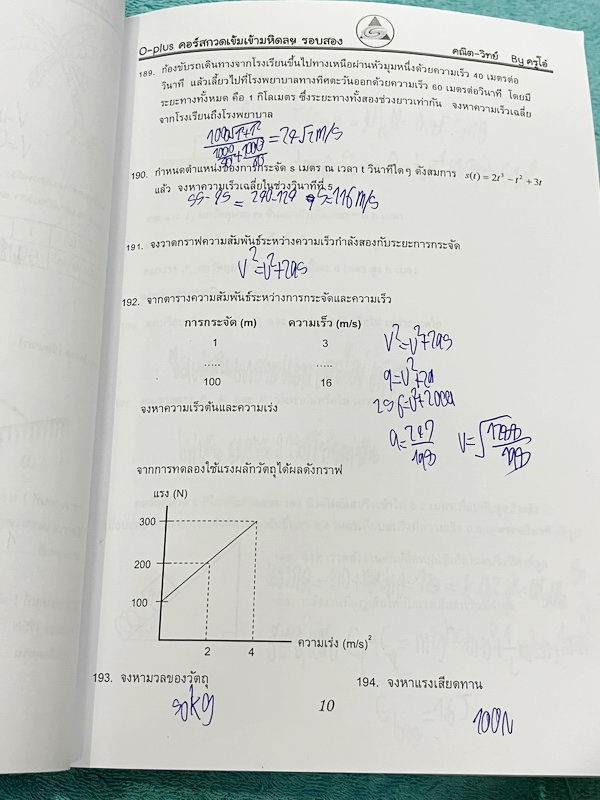 O-plus คอร์สกวดเข้มเข้ามหิดลฯ รอบสอง
คณิต-วิทย์ By ครูโอ๋
189. ก้องขับรถเดินทางจากโรงเรียนขึ้นไปทางเหนือผ่านหัวมุมหนึ่งด้วยความเร็ว 40 เมตรต่อ
วินาที แล้วเลี้ยวไปที่โรงพยาบาลทางทิศตะวันออกด้วยความเร็ว 60 เมตรต่อวินาที โดยมี
ระยะทางทั้งหมด คือ 1 กิโลเมตร ซึ่งระยะทางทั้งสองช่วงยาวเท่ากัน จงหาความเร็วเฉลี่ย
จากโรงเรียนถึงโรงพยาบาล
= 24√2 m/s
190. กำหนดตำแหน่งของการกระจัด s เมตร ณ เวลา t วินาทีใดๆ ดังสมการ s(t) = 2t³ − t² + 3t
แล้ว จงหาความเร็วเฉลี่ยในช่วงวินาทีที่ 5
= 116 m/s
191. จงวาดกราฟความสัมพันธ์ระหว่างความเร็วกำลังสองกับระยะการกระจัด
V² = U² + 2as
192. จากตารางความสัมพันธ์ระหว่างการกระจัดและความเร็ว
การกระจัด (m) ความเร็ว (m/s)
1 3
..... .....
100 16
V² = U² + 2as
9 = U² + 2a
256 = U² + 200a
จงหาความเร็วต้นและความเร่ง
a = 247/198
จากการทดลองใช้แรงผลักวัตถุได้ผลดังกราฟ
แรง (N)
300
200
100
2 4
ความเร่ง (m/s)²
193. จงหามวลของวัตถุ
50 kg
194. จงหาแรงเสียดทาน
100 N
10